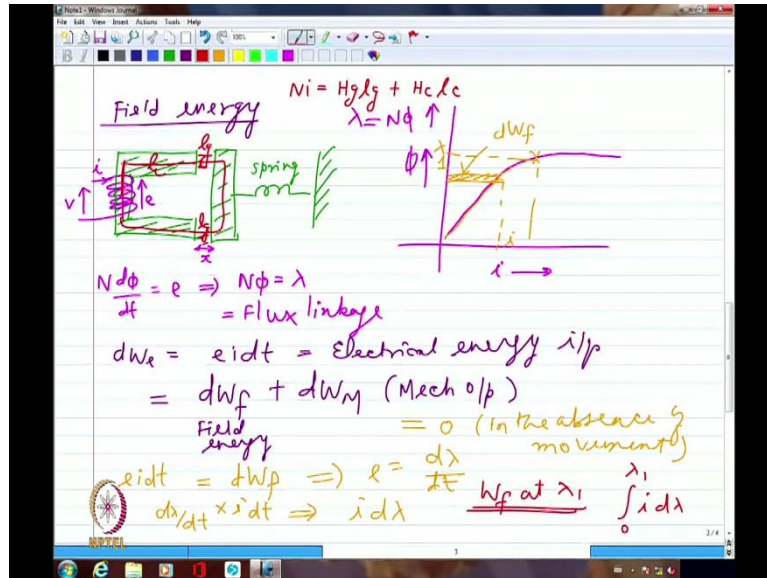 Note1 - Windows Journal
File Edit View Insert Actions Tools Help
100%
B I
Ni = Hglg + Hclc
Field energy
λ = Nφ ↑
dWf
φ ↑
λ1
lg
lc
i
spring
v ↑
↑ e
lg
x
i
i →
N dφ/dt = e ⇒ Nφ = λ
= Flux linkage
dWe = eidt = Electrical energy i/p
= dWf + dWM (Mech o/p)
Field energy
= 0 (In the absence of movement)
eidt = dWf ⇒ e = dλ/dt
dλ/dt × idt ⇒ idλ
Wf at λ1
∫0^λ1 i dλ
NPTEL
3/4
3